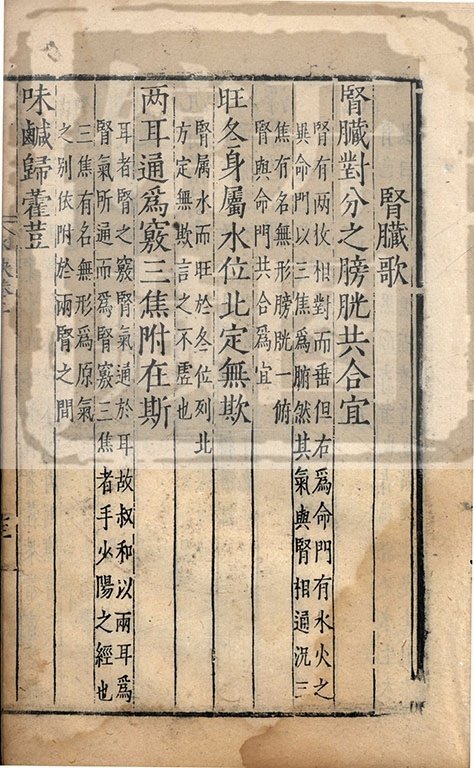 腎臟歌
腎臟對分之膀胱共合宜
腎有两枚相對而垂但右爲命門有水火之
異命門以三焦爲腑然其氣與腎相通況三
焦有名無形膀胱一腑
腎與命門共合爲宜
旺冬身屬水位北定無欺
腎属水而旺於冬位列北
方定無欺言之不虚也
两耳通爲竅三焦附在斯
耳者腎之竅腎氣通於耳故叔和以兩耳爲
腎氣所通而爲腎竅三焦者手少陽之經也
三焦有名無形爲原氣
之别依附於兩腎之間
味鹹歸藿荳